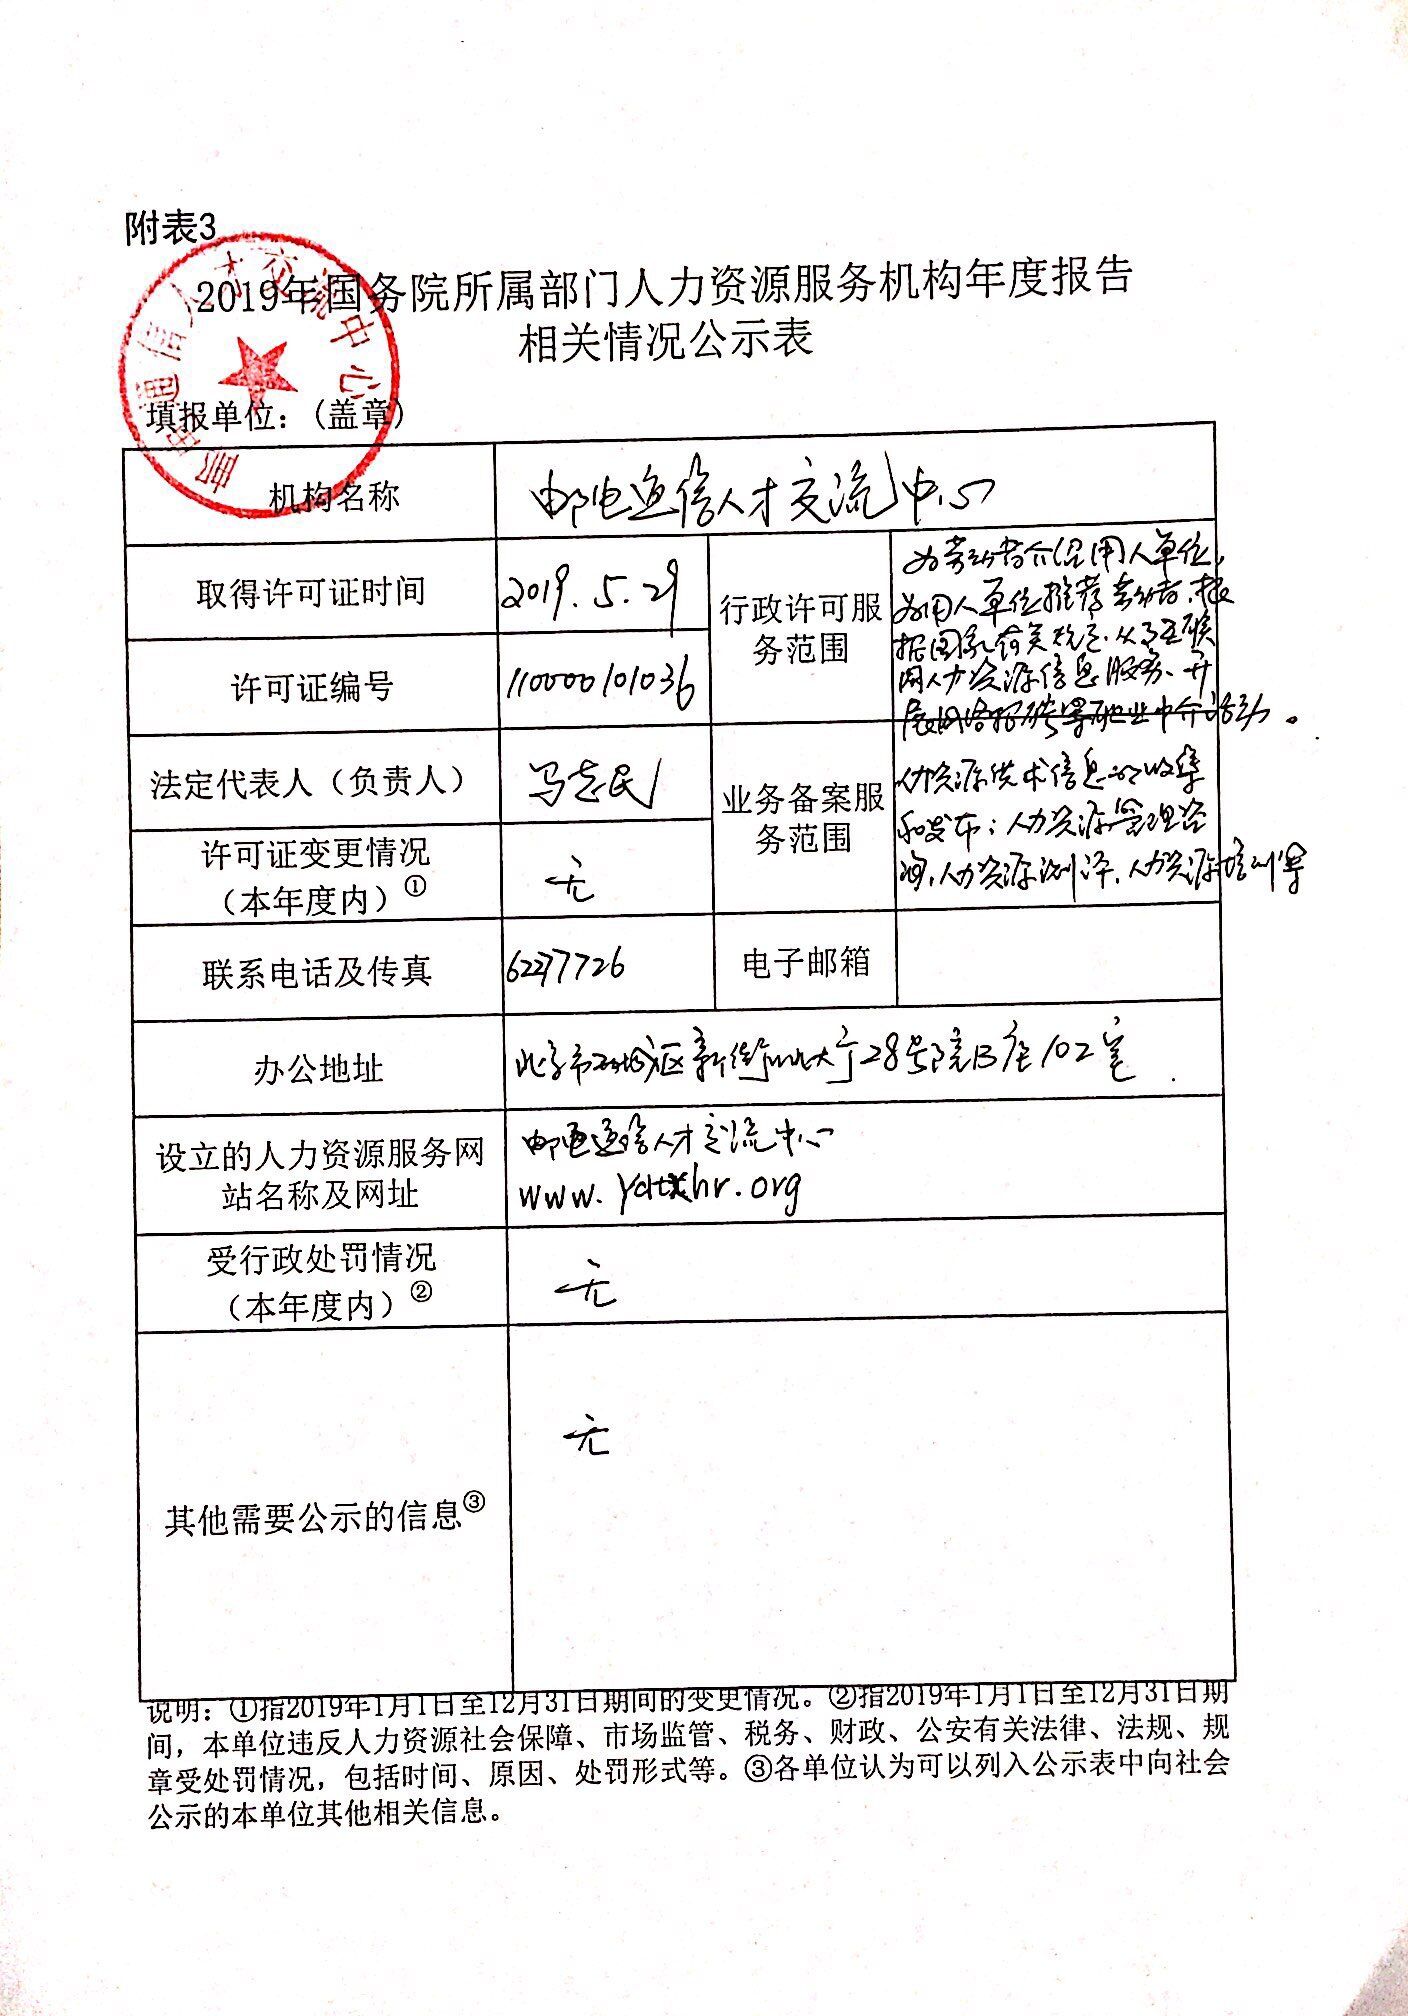 附表3
2019年国务院所属部门人力资源服务机构年度报告
相关情况公示表
填报单位：(盖章)
邮电通信人才交流中心
机构名称
邮电通信人才交流中心
取得许可证时间
2019.5.29
行政许可服
务范围
为劳动者介绍用人单位，
为用人单位推荐劳动者，根
据国家有关规定，从事互联
网人力资源信息服务、开
展网络招聘等职业中介活动。
许可证编号
110000101036
法定代表人（负责人）
冯志民
业务备案服
务范围
人力资源供求信息的收集
和发布；人力资源管理咨
询，人力资源测评，人力资源培训等
许可证变更情况
（本年度内）①
无
联系电话及传真
62277726
电子邮箱
办公地址
北京市西城区新街口北大街28号院B座102室
设立的人力资源服务网
站名称及网址
邮电通信人才交流中心
www.ydtxhr.org
受行政处罚情况
（本年度内）②
无
其他需要公示的信息③
无
说明：①指2019年1月1日至12月31日期间的变更情况。②指2019年1月1日至12月31日期
间，本单位违反人力资源社会保障、市场监管、税务、财政、公安有关法律、法规、规
章受处罚情况，包括时间、原因、处罚形式等。③各单位认为可以列入公示表中向社会
公示的本单位其他相关信息。